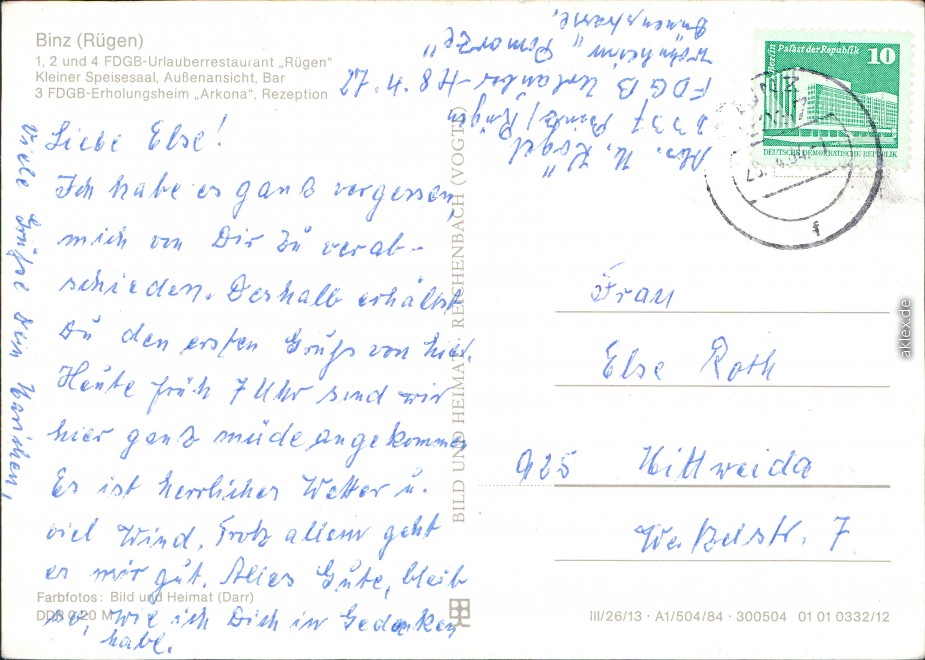 Binz (Rügen)
1, 2 und 4 FDGB-Urlauberrestaurant „Rügen“
Kleiner Speisesaal, Außenansicht, Bar
3 FDGB-Erholungsheim „Arkona“, Rezeption
Liebe Else!
Ich habe es ganz vergessen,
mich von Dir zu verab-
schieden. Deshalb erhältst
Du den ersten Gruß von hier.
Heute früh 7 Uhr sind wir
hier ganz müde angekommen
Es ist herrliches Wetter u.
viel Wind. Trotz allem geht
es mir gut. Alles Gute, bleib
so, wie ich Dich in Gedanken
habe.
Viele Grüße Dein
Farbfotos: Bild und Heimat (Darr)
DDR 0,20 M
BILD UND HEIMAT REICHENBACH (VOGTL)
Abs. U. Vogel
2337 Binz/Rügen
FDGB Urlauber-
wohnheim
Berlin Palast der Republik 10
DEUTSCHE DEMOKRATISCHE REPUBLIK
Frau
Else Roth
925 Mittweida
Str. 7
III/26/13 · A1/504/84 · 300504 01 01 0332/12
aklex.de